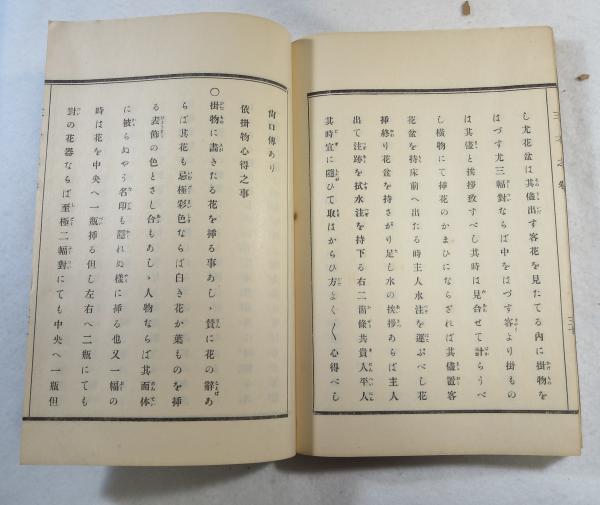 し尤花盆は其儘出す客花を見たてる內に掛物を
はづす尤三幅對ならば中をはづす客より掛もの
は其儘と挨拶致すべし其時は見合せて計らうべ
し橫物にて挿花のかまひにならざれば其儘置客
花盆を持床前へ出たる時主人水注を運ぶべし花
挿終り花盆を持さがり足し水の挨拶あらば主人
出て注跡を拭水注を持下る右二箇條共貴人平人
其時宜に隨ひて取はからひ方よく〳〵心得べし
尙口傳あり
依掛物心得之事
〇掛物に畵きたる花を挿る事あしゝ贊に花の辭あ
らば其花も忌極彩色ならば白き花か葉ものを挿
る表飾の色とさし合もあしゝ人物ならば其面体
に被らぬやう名印も隱れぬ樣に挿る也又一幅の
時は花を中央へ一瓶挿る但し左右へ二瓶にても
對の花器ならば至極二幅對にても中央へ一瓶但